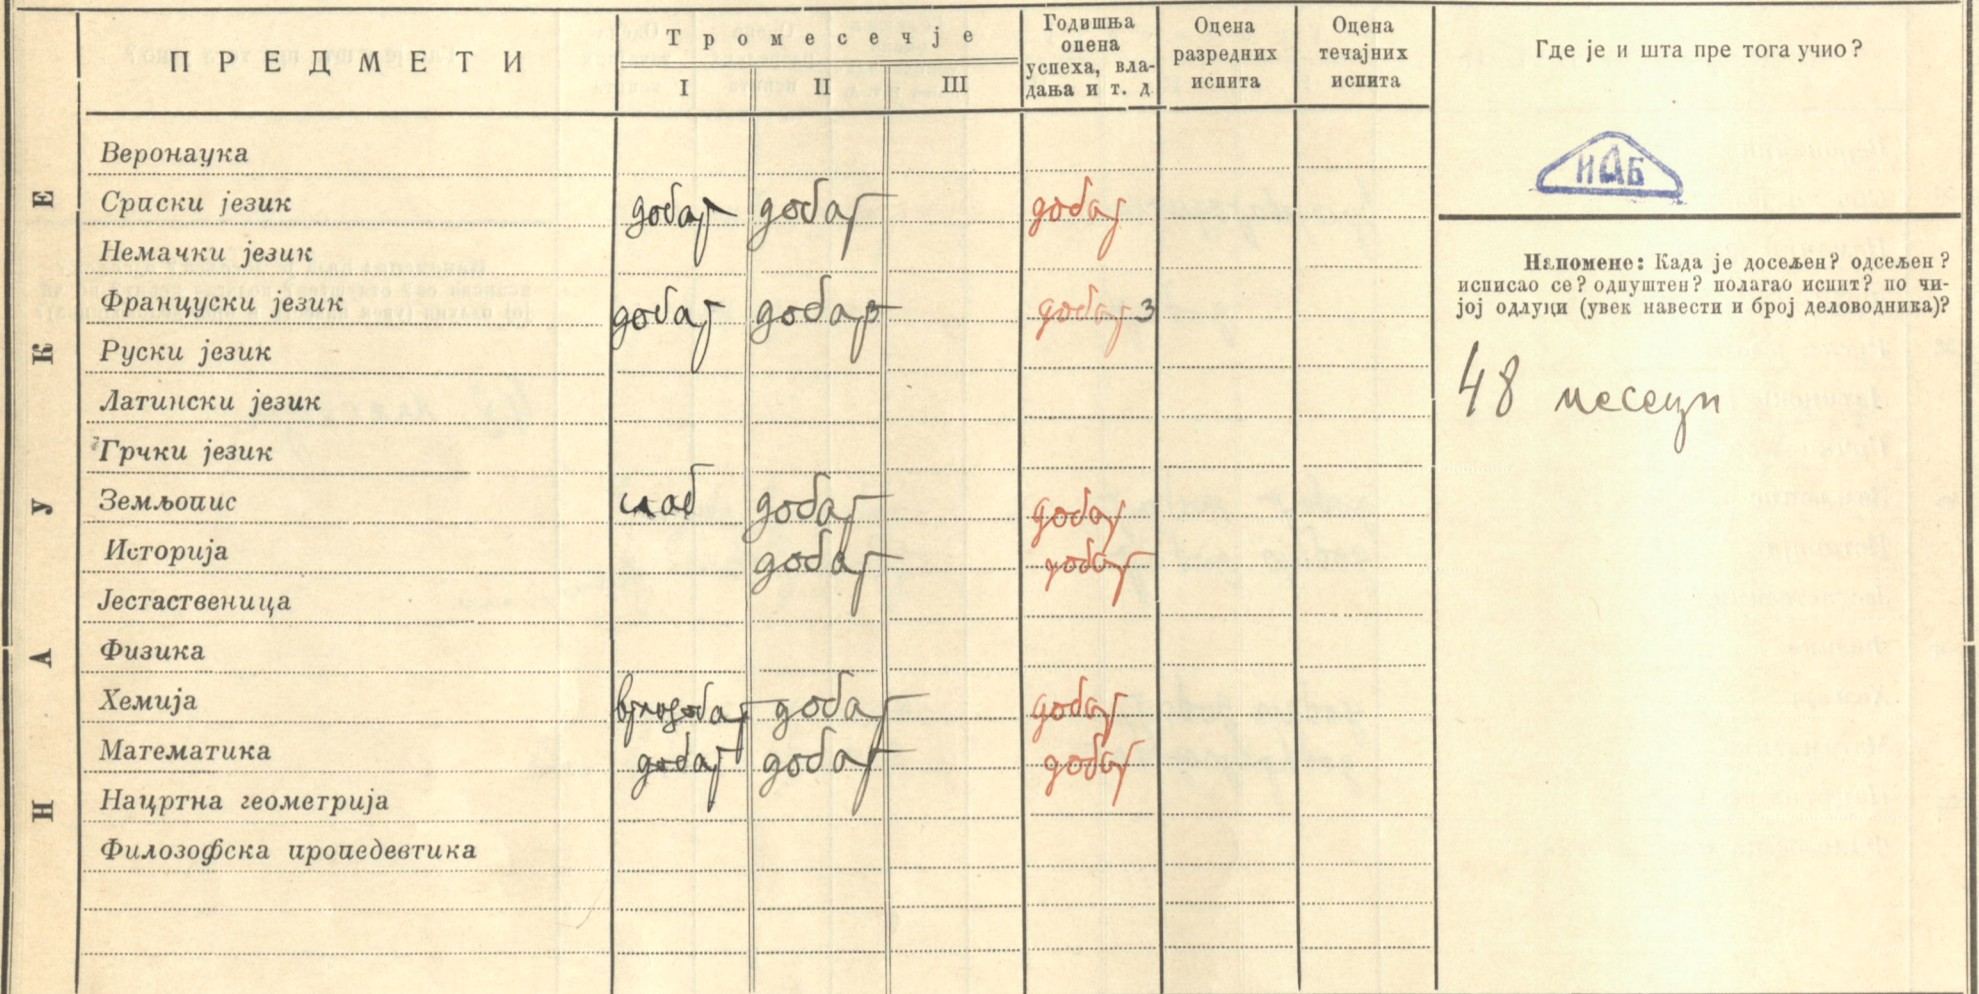 ПРЕДМЕТИ
Тромесечје
I II III
Годишња оцена успеха, вла-дања и т. д
Оцена разредних испита
Оцена течајних испита
Где је и шта пре тога учио?
ИАБ
НАУКЕ
Веронаука
Српски језик добар добар добар
Немачки језик
Француски језик добар добар добар 3
Руски језик
Латински језик
Грчки језик
Земљопис слаб добар добар
Историја добар добар
Јестаственица
Физика
Хемија врлодобар добар добар
Математика добар добар добар
Нацртна геометрија
Филозофска пропедевтика
Напомене: Када је досељен? одсељен?
исписао се? одпуштен? полагао испит? по чи-
јој одлуци (увек навести и број деловодника)?
48 месеци